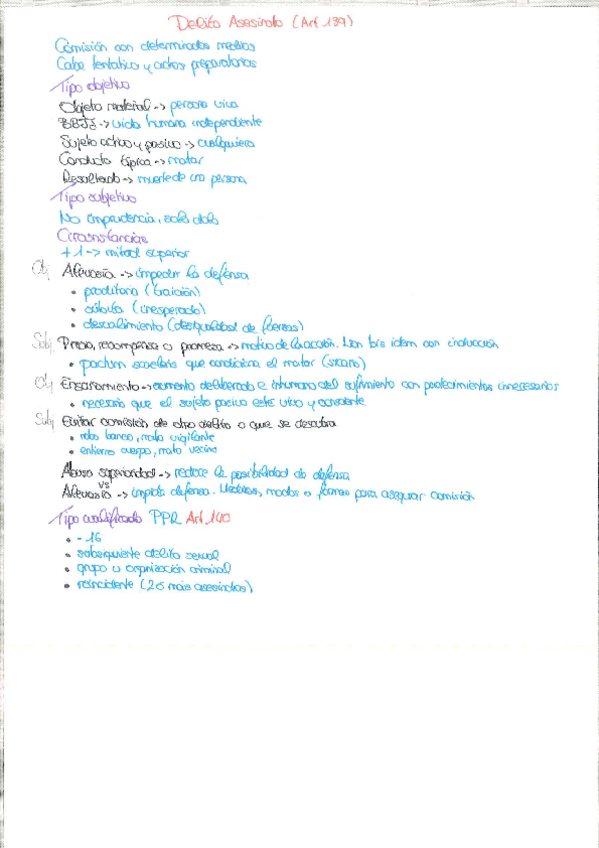 Delito Asesinato (Art 139)
Comisión con determinados medios
Cabe tentativa y actos preparatorios
Tipo objetivo
Objeto material -> persona viva
BBJJ -> vida humana independiente
Sujeto activo y pasivo -> cualquiera
Conducta típica -> matar
Resultado -> muerte de una persona
Tipo subjetivo
No imprudencia, solo dolo
Circunstancias
+1 -> mitad superior
Obj Alevosía -> impedir la defensa
• proditoria (traición)
• súbita (inesperado)
• desvalimiento (desigualdad de fuerzas)
Subj Precio, recompensa o promesa -> motivo de la acción. Non bis idem con inducción
• pactum scaeleris que condiciona el matar (sicario)
Obj Ensañamiento -> aumento deliberado e inhumano del sufrimiento con padecimientos innecesarios
• necesario que el sujeto pasivo esté vivo y consciente
Subj Evitar comisión de otro delito o que se descubra
• robo banco, mato vigilante
• entierro cuerpo, mato vecino
Abuso superioridad -> reduce la posibilidad de defensa
vs
Alevosía -> impide defensa. Medios, modos o formas para asegurar comisión
Tipo cualificado PPR Art 140
• -16
• subsiguiente delito sexual
• grupo u organización criminal
• reincidente (2 o más asesinatos)